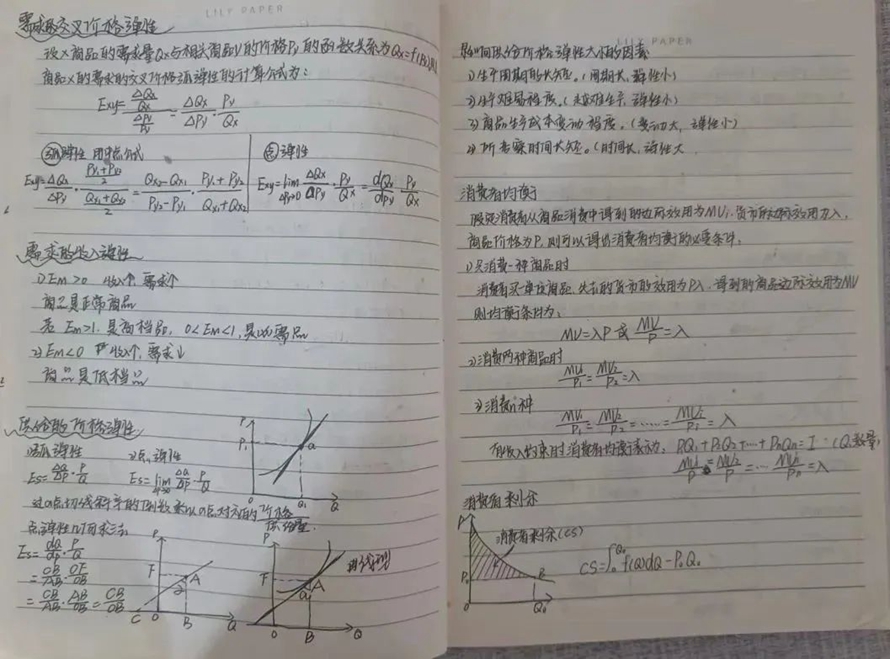 LILY PAPER
需求的交叉价格弹性
设X商品的需求量Qx与相关商品Y的价格Py的函数关系为Qx=f(Py),则
商品X的需求的交叉价格弧弹性的计算公式为:
Exy=(ΔQx/Qx)/(ΔPy/Py)=ΔQx/ΔPy·Py/Qx
弧弹性 用中点公式
Exy=ΔQx/ΔPy·((Py1+Py2)/2)/((Qx1+Qx2)/2)=(Qx2-Qx1)/(Py2-Py1)·(Py1+Py2)/(Qx1+Qx2)
点弹性
Exy=lim ΔPy→0 ΔQx/ΔPy·Py/Qx=dQx/dPy·Py/Qx
需求的收入弹性
1) Em>0 收入个,需求个
商品是正常商品
若Em>1,是高档品,0<Em<1,是必需品
2) Em<0 收入个,需求↓
商品是低档品
供给的价格弹性
1)弧弹性
Es=ΔQ/ΔP·P/Q
2)点弹性
Es=lim ΔQ/ΔP·P/Q
过a点切线斜率的倒数乘以a点对应的价格/供给量
点弹性几何求法:
Es=dQ/dP·P/Q
=CB/AB·OF/OB
=CB/AB·AB/OB=CB/OB
P
P1
a
O
Q1
Q
P
F
A
C
O
B
Q
P
F
A
a
曲线型
O
B
Q
LILY PAPER
影响供给价格弹性大小的因素
1)生产周期的长短。(周期长,弹性小)
2)生产难易程度。(越难生产,弹性小)
3)商品生产成本变动程度。(变动大,弹性小)
4)所考察时间长短。(时间长,弹性大
消费者均衡
假定消费者从商品消费中得到的边际效用为MU,货币的边际效用为λ,
商品价格为P,则可以得出消费者均衡的必要条件。
1)只消费一种商品时
消费者买一单位商品,失去的货币的效用为Pλ,得到的商品边际效用为MU
则均衡条件为:
MU=λP 或 MU/P=λ
2)消费两种商品时
MU1/P1=MU2/P2=λ
3)消费n种
MU1/P1=MU2/P2=……=λ
有收入约束时消费者均衡表示为,P1Q1+P2Q2+…+PnQn=I (Q:数量)
=λ
消费者剩余
P
消费者剩余(CS)
P0
B
O
Q0
CS=∫₀^Q0 f(Q)dQ-P0Q0